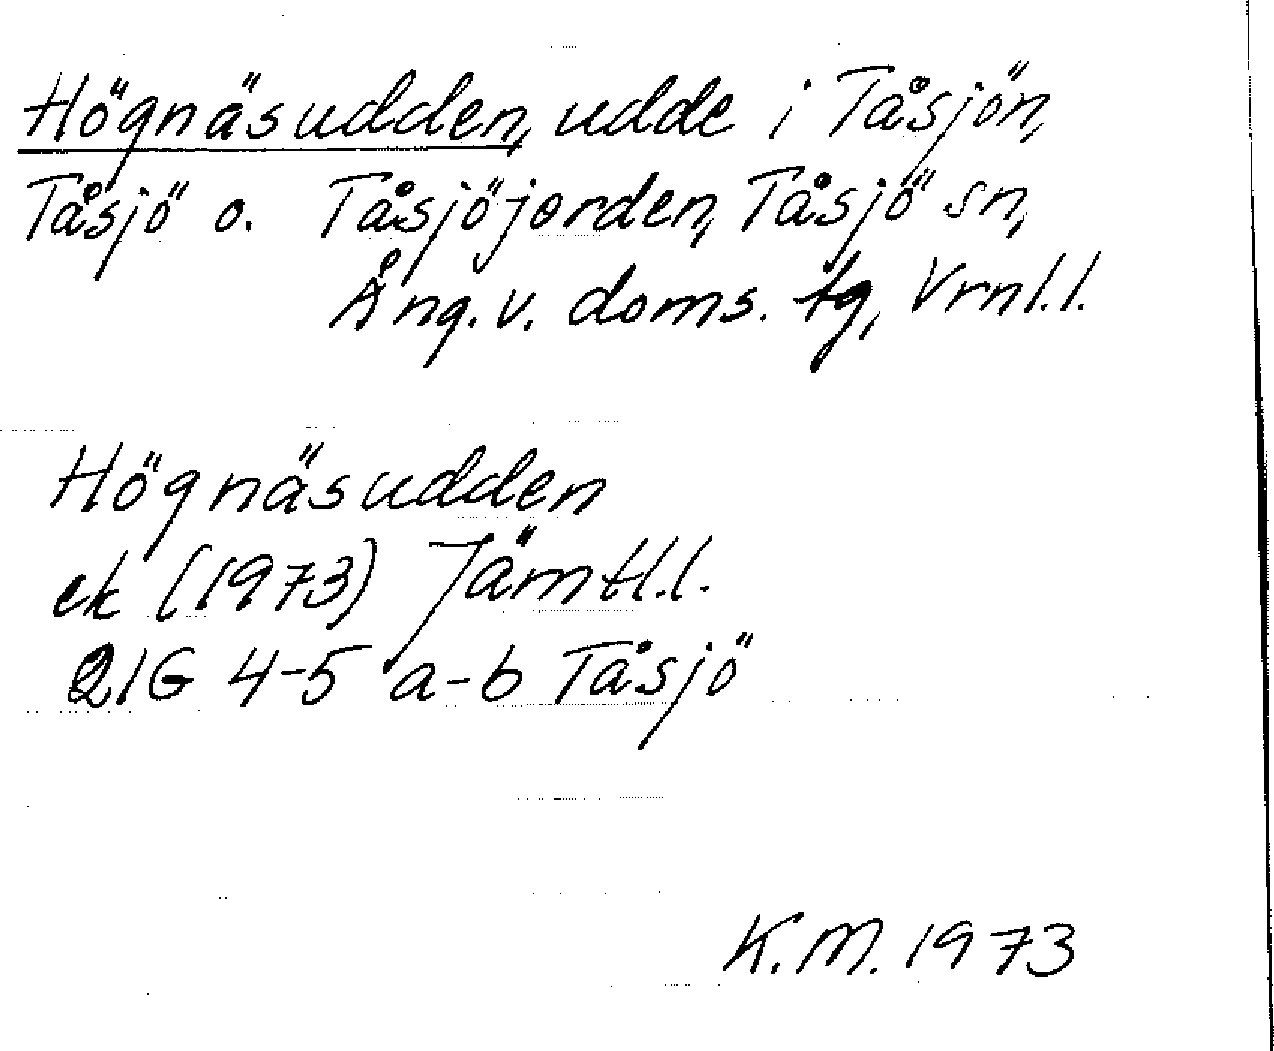 Högnäsudden, udde i Tåsjön,
Tåsjö o. Tåsjöjorden, Tåsjö sn,
Ång. v. doms. tg, Vrnl.l.
Högnäsudden
ek (1973) Jämtl.l.
21G 4-5 a-b Tåsjö
K.M. 1973